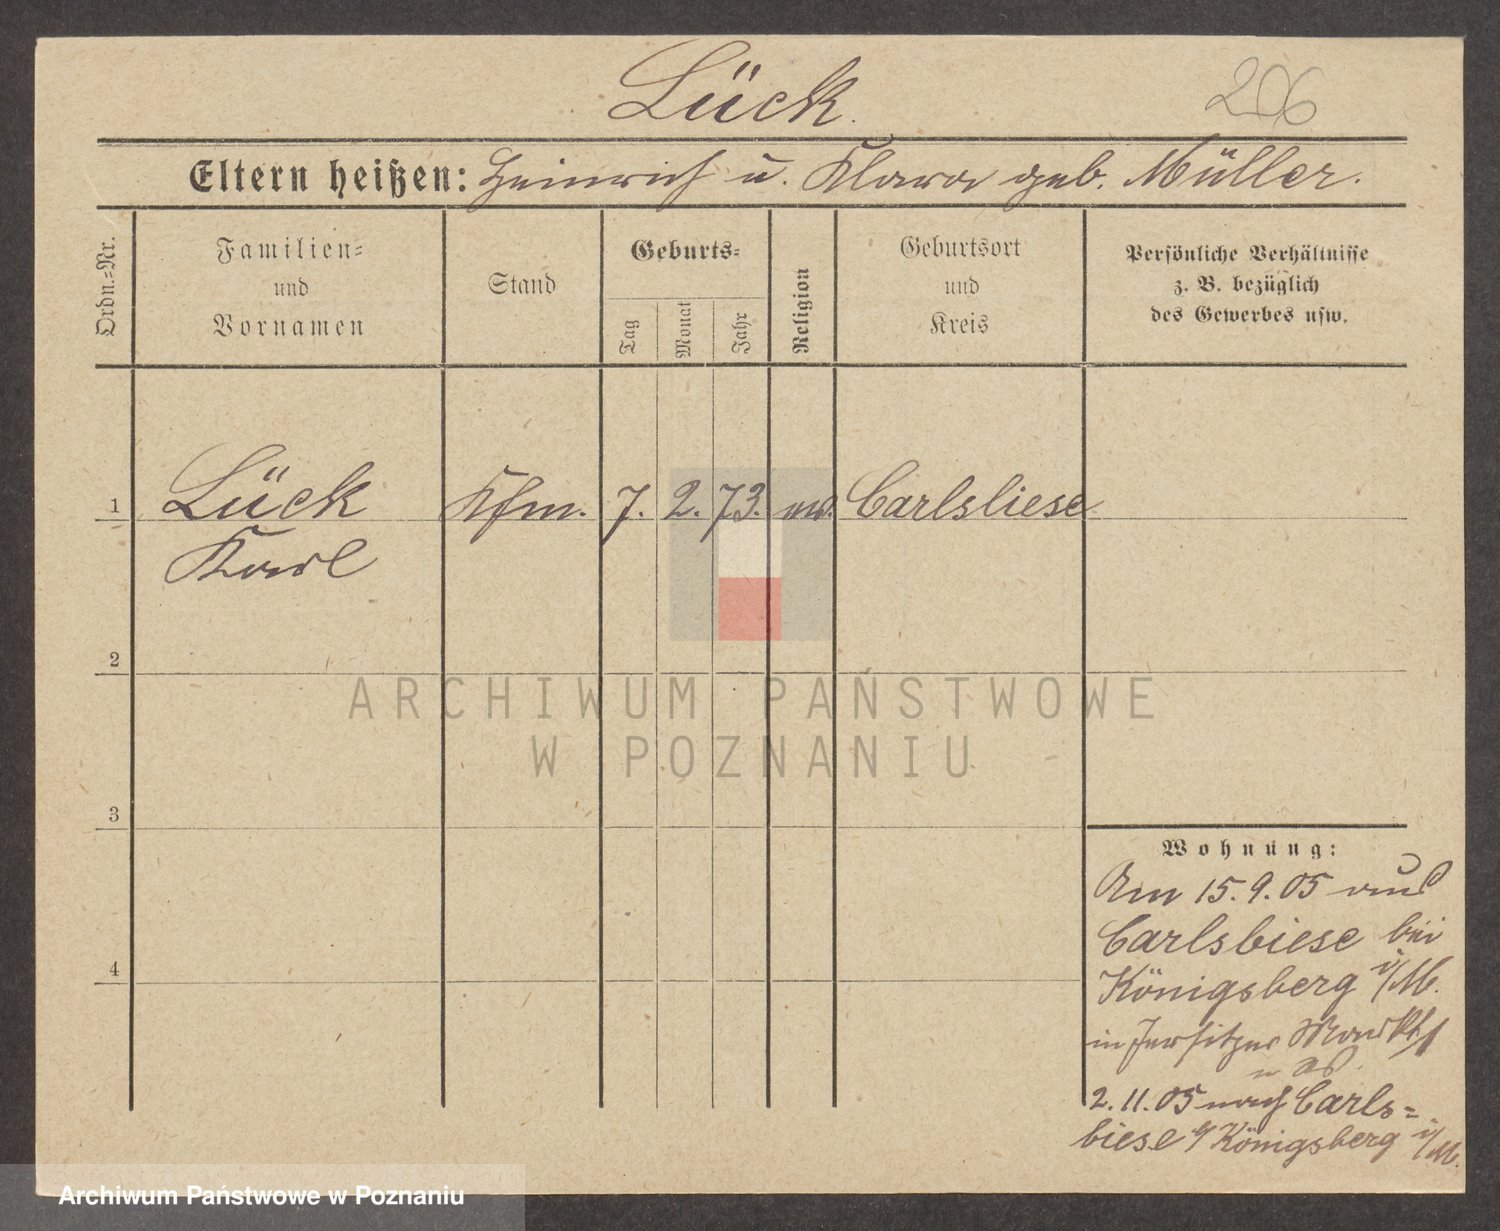 Lück.
206
Eltern heißen: Heinrich u. Klara geb. Müller.
Ordn.-Nr.
Familien-
und
Vornamen
Stand
Geburts-
Tag
Monat
Jahr
Religion
Geburtsort
und
Kreis
Persönliche Verhältnisse
z. B. bezüglich
des Gewerbes usw.
1 Lück Kfm. 7. 2. 73. Carlsliese
Karl
2
3
4
Wohnung:
Am 15.9.05 aus
Carlsbiese bei
Königsberg i/M.
in Jersitzer Markt
2.11.05 nach Carls=
biese b/ Königsberg i/M.
ARCHIWUM PAŃSTWOWE
W POZNANIU
Archiwum Państwowe w Poznaniu